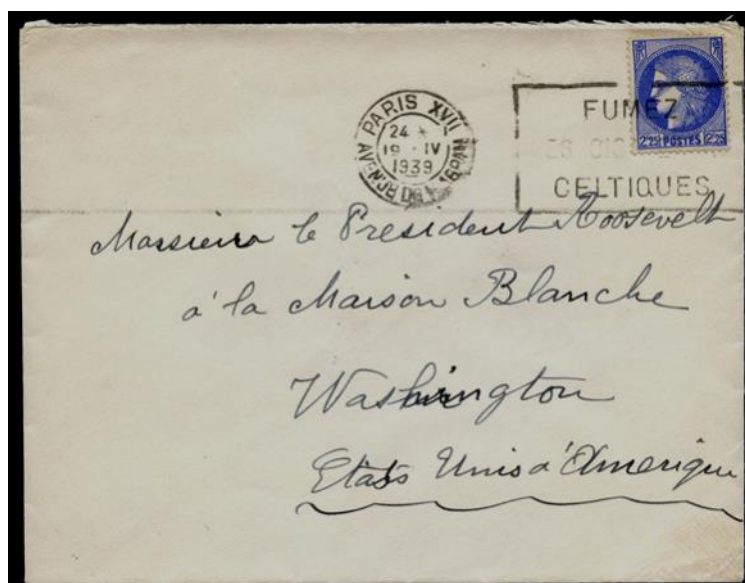 PARIS XVII
24
19 IV
1939
FUMEZ
CELTIQUES
2F25 POSTES 2F25
Monsieur le President Roosevelt
à la Maison Blanche
Washington
Etats Unis d'Amerique